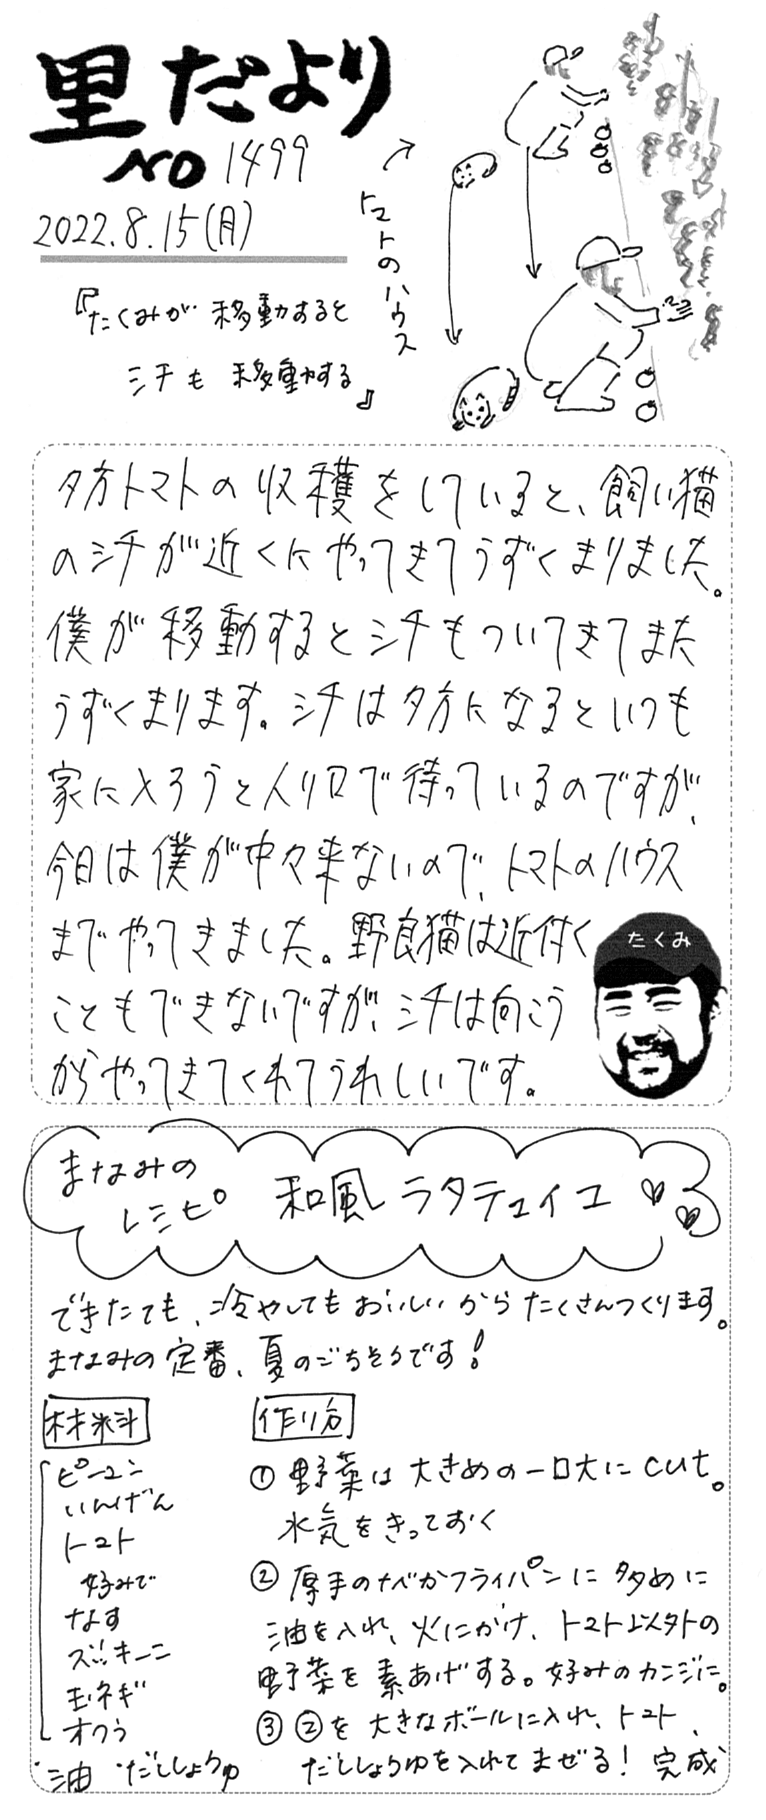 里だより
NO 1499
2022.8.15(月)
『たくみが 移動すると
シチも 移動する』
トマトのハウス
夕方トマトの収穫をしていると、飼い猫
のシチが近くにやってきてうずくまりました。
僕が移動するとシチもついてきてまた
うずくまります。シチは夕方になるといつも
家に入ろうと入り口で待っているのですが、
今日は僕が中々来ないので、トマトのハウス
までやってきました。野良猫は近付く
こともできないですが、シチは向こう
からやってきてくれてうれしいです。
たくみ
まなみの
レシピ
和風ラタテュイユ
できたても、冷やしてもおいしいからたくさんつくります。
まなみの定番、夏のごちそうです!
材料
ピーマン
いんげん
トマト
好みで
なす
ズッキーニ
玉ネギ
オクラ
・油 ・だししょうゆ
作り方
① 野菜は大きめの一口大にcut。
水気をきっておく
② 厚手のナベかフライパンに多めに
油を入れ、火にかけ、トマト以外の
野菜を素あげする。好みのカンジに。
③ ②を大きなボールに入れ、トマト、
だししょうゆを入れてまぜる! 完成